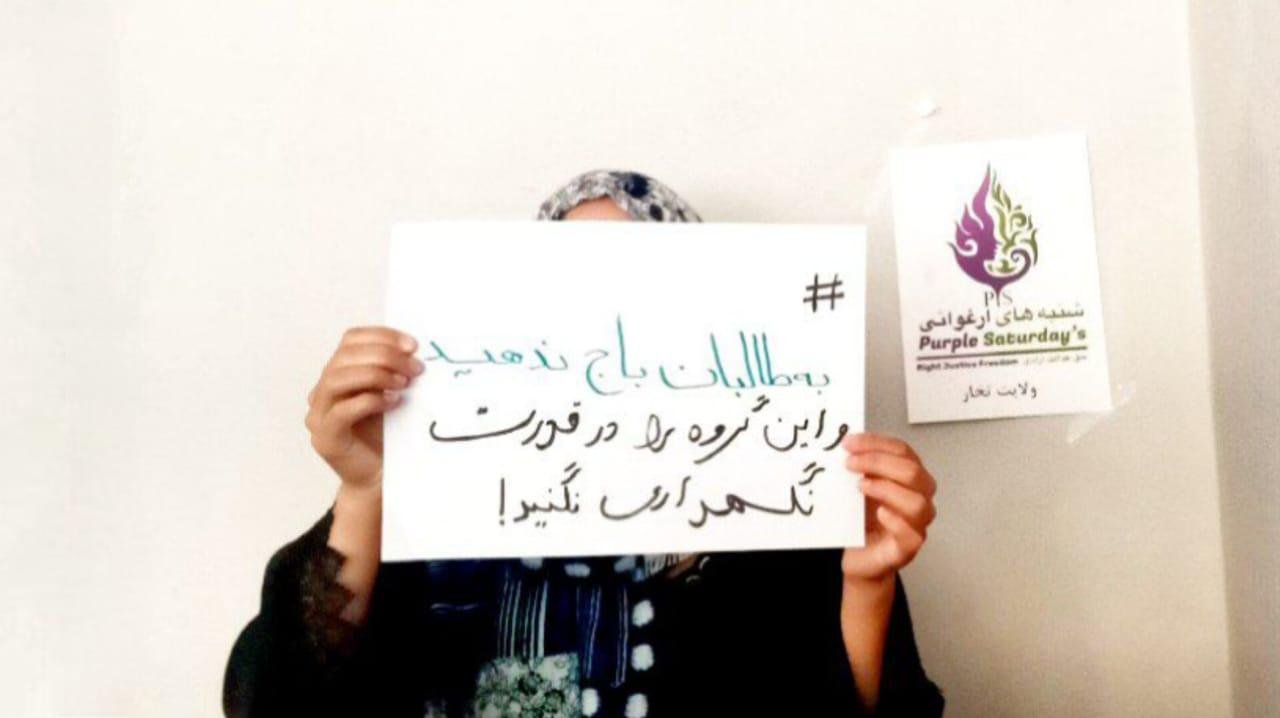 #
به طالبان باج ندهید
و این گروه را در قدرت
نگهداری نکنید!
P S
شنبه های ارغوانی
Purple Saturday's
Right Justice Freedom
ولایت تخار